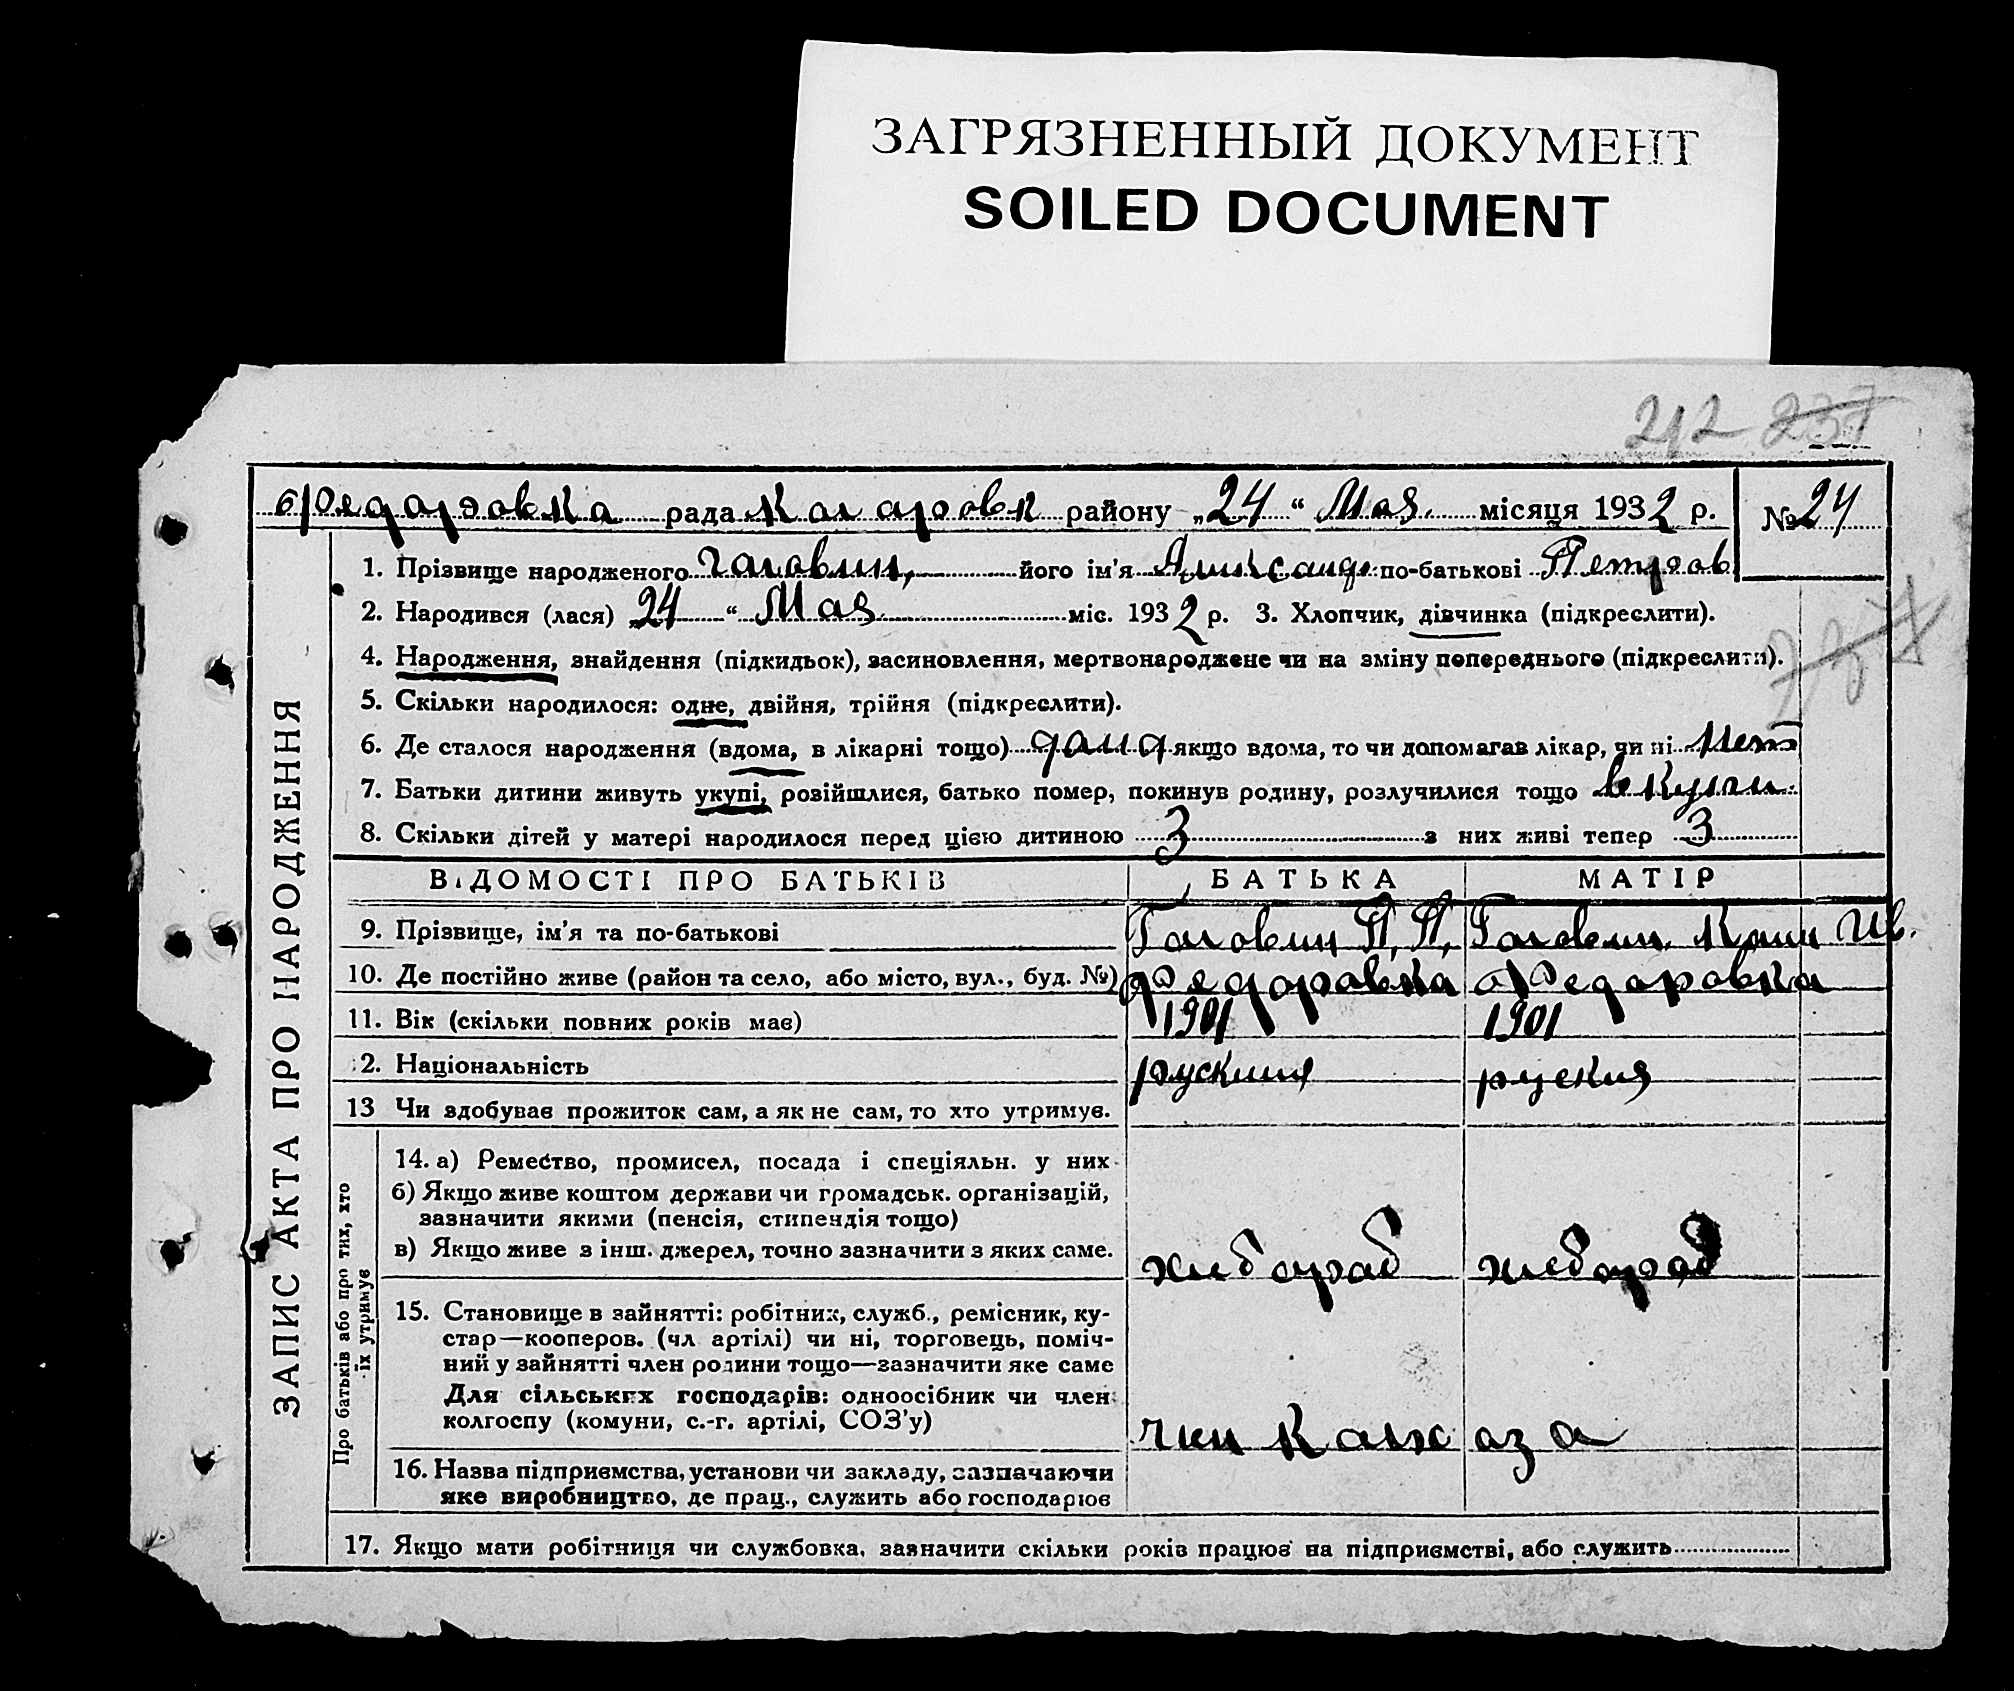 ЗАГРЯЗНЕННЫЙ ДОКУМЕНТ
SOILED DOCUMENT
212 237
Федаровка рада район у „24“ Мая місяця 1932 р. № 24
1. Прізвище народженого його ім'я по-батькові Петров
2. Народився (лася) „24“ Мая міс. 1932 р. 3. Хлопчик, дівчинка (підкреслити).
4. Народження, знайдення (підкидьок), засиновлення, мертвонароджене чи на зміну попереднього (підкреслити).
5. Скільки народилося: одне, двійня, трійня (підкреслити).
6. Де сталося народження (вдома, в лікарні тощо) дома якщо вдома, то чи допомагав лікар, чи ні нет
7. Батьки дитини живуть укупі, розійшлися, батько помер, покинув родину, розлучилися тощо вкупи
8. Скільки дітей у матері народилося перед цією дитиною 3 з них живі тепер 3
ЗАПИС АКТА ПРО НАРОДЖЕННЯ
ВІДОМОСТІ ПРО БАТЬКІВ БАТЬКА МАТІР
9. Прізвище, ім'я та по-батькові Галовин П. П. Ив.
10. Де постійно живе (район та село, або місто, вул., буд. №) Федаровка Федаровка
11. Вік (скільки повних років має) 1901 1901
2. Національність руския
13 Чи здобуває прожиток сам, а як не сам, то хто утримує.
Про батьків або про тих, хто їх утримує
14. а) Ремество, промисел, посада і спеціяльн. у них
б) Якщо живе коштом держави чи громадськ. організацій,
зазначити якими (пенсія, стипендія тощо)
в) Якщо живе з інш. джерел, точно зазначити з яких саме. хлебараб хлебараб
15. Становище в зайнятті: робітник, служб., ремісник, ку-
стар—кооперов. (чл артілі) чи ні, торговець, поміч-
ний у зайнятті член родини тощо—зазначити яке саме
Для сільських господарів: одноосібник чи член
колгоспу (комуни, с.-г. артілі, СОЗ'у) член калхоза
16. Назва підприємства, установи чи закладу, зазначаючи
яке виробництво, де прац., служить або господарює
17. Якщо мати робітниця чи службовка, зазначити скільки років працює на підприємстві, або служить